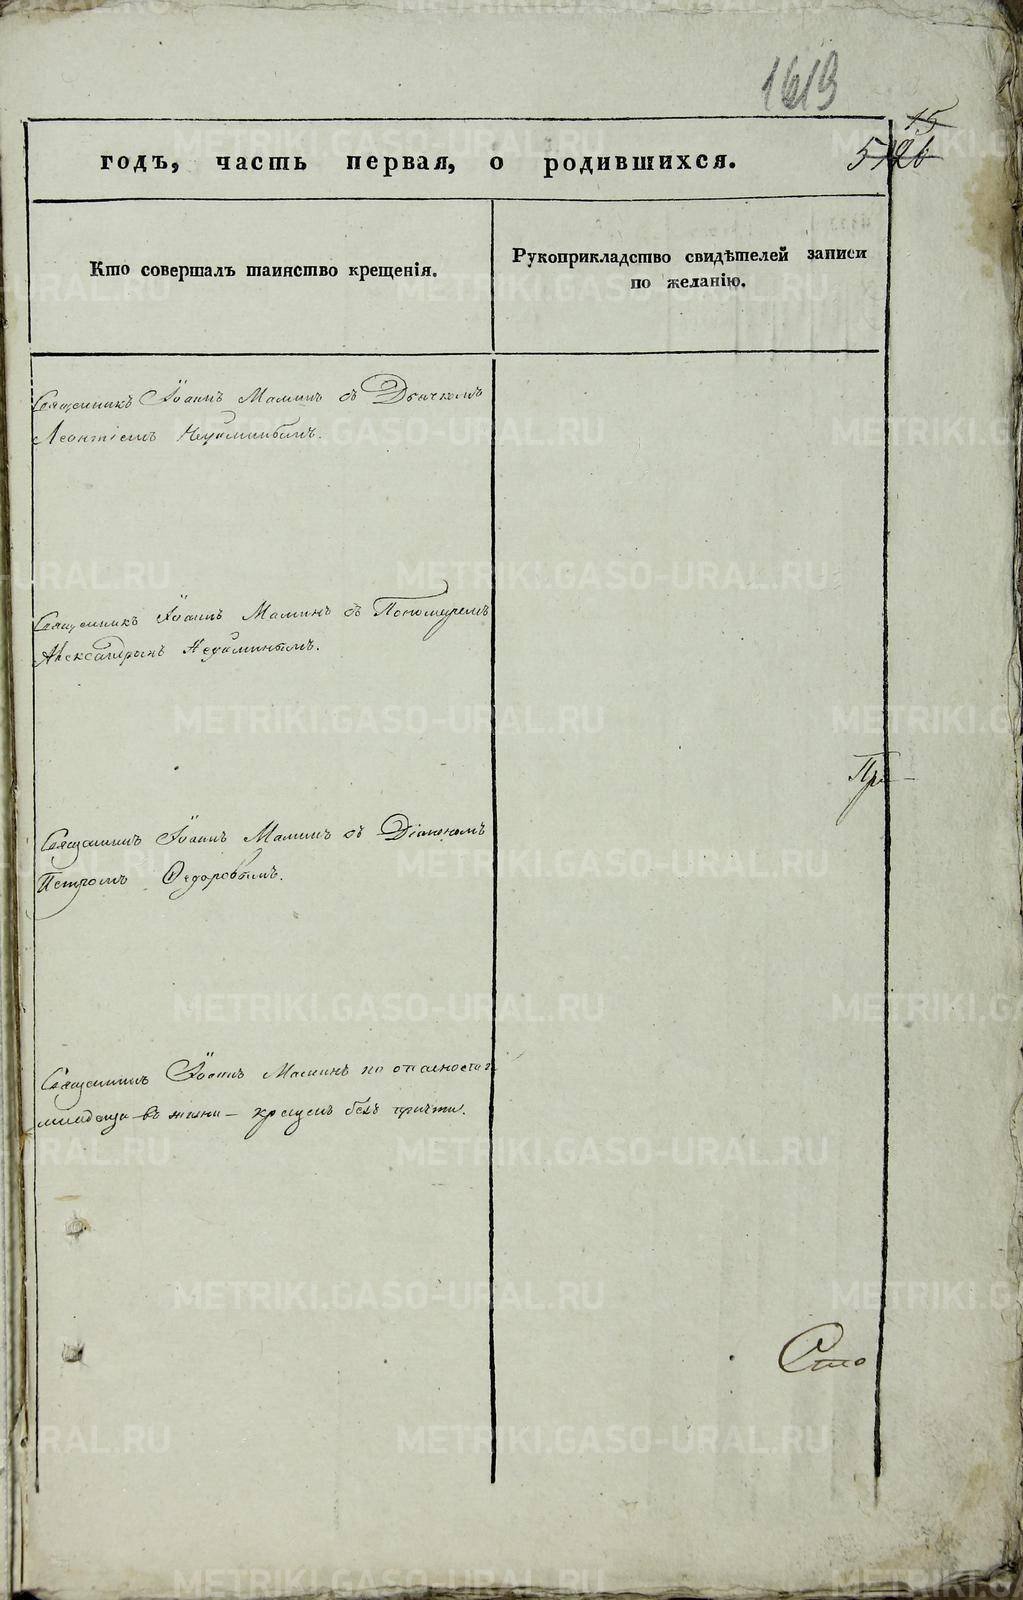 1619
15
годъ, часть первая, о родившихся.
5126
Кто совершалъ таинство крещенія.
Рукоприкладство свидѣтелей записи
по желанію.
Священникъ Іоаннъ Маминъ съ Дьячкомъ
Леонтіемъ
Священникъ Іоаннъ Маминъ съ Пономаремъ
Александромъ
При
Священникъ Іоаннъ Маминъ съ Діакономъ
Петромъ Федоровымъ.
Священникъ Іоаннъ Маминъ по опасности
младенца въ жизни крещенъ безъ причта.
Сто
METRIKI.GASO-URAL.RU